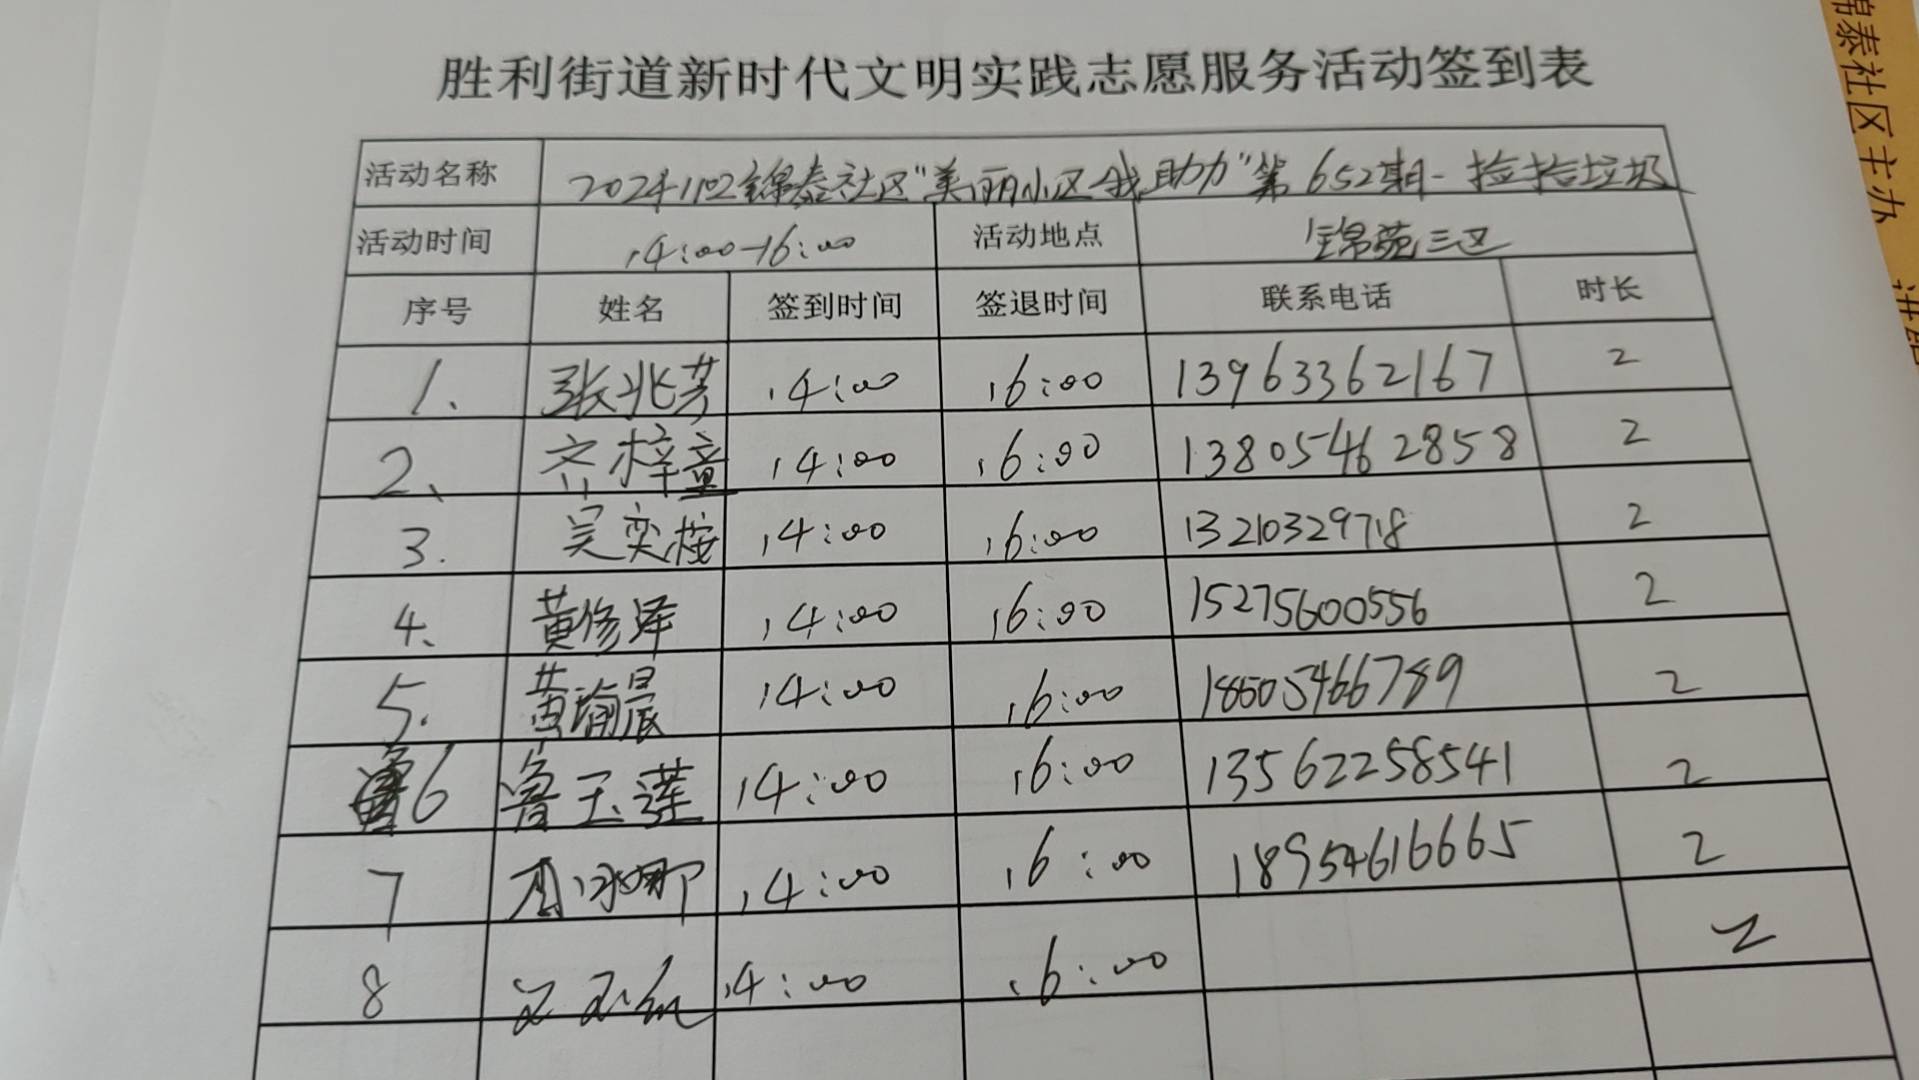 胜利街道新时代文明实践志愿服务活动签到表
活动名称 20241102锦泰社区"美丽小区我助力"第652期-捡拾垃圾
活动时间 14:00-16:00 活动地点 锦苑三区
序号 姓名 签到时间 签退时间 联系电话 时长
1. 张兆芳 14:00 16:00 13963362167 2
2、 齐梓童 14:00 16:00 13805462858 2
3. 吴奕桉 14:00 16:00 13210329718 2
4、 黄修泽 14:00 16:00 15275600556 2
5. 黄瑜晨 14:00 16:00 18605466789 2
6 鲁玉莲 14:00 16:00 13562258541 2
7 14:00 16:00 18954616665 2
8 14:00 16:00 2
锦泰社区主办